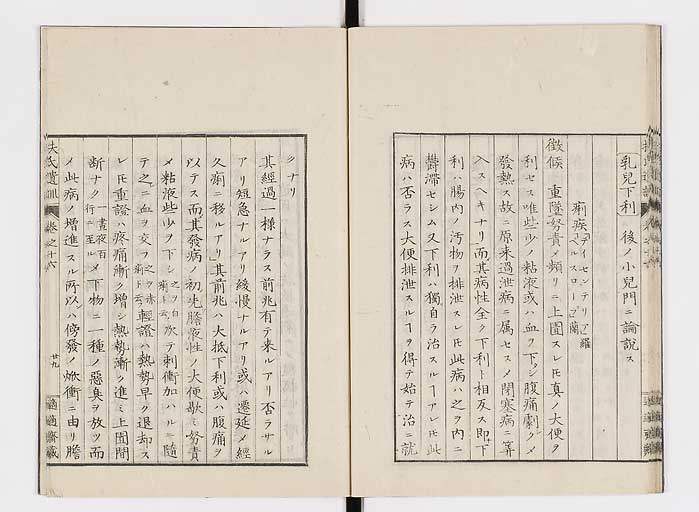 乳兒下利 後ノ小兒門ニ論説ス
痢疾 ディセンテリア 羅
ペルスロープ 蘭
徴候 重墜努責メ頻リニ上圊スレ𪜈真ノ大便ヲ
利セス唯些少ノ粘液或ハ血ヲ下シ腹痛劇クメ
發熱ス故ニ原来過泄病ニ属セスメ閉塞病ニ算
入スヘキナリ而其病性全ク下利ト相反ス即下
利ハ腸内ノ汚物ヲ排泄スレ𪜈此病ハ之ヲ内ニ
鬱滞セシム又下利ハ獨自ラ治スルヿアレ𪜈此
病ハ否ラス大便排泄スルヿヲ得テ始テ治ニ就
クナリ
其經過一様ナラス前兆有テ来ルアリ否ラサル
アリ短急ナルアリ緩慢ナルアリ或ハ遷延メ經
久痢ニ移ルアリ其前兆ハ大抵下利或ハ腹痛ヲ
以テス而其發病ノ初先膽液性ノ大便歇ミ努責
メ粘液些少ヲ下シ 之ヲ白痢ト云 次テ刺衝加ハルニ隨
テ之ニ血ヲ交フ 之ヲ赤痢ト云 輕證ハ熱勢早ク退却ス
レ𪜈重證ハ疼痛漸ク増シ熱勢漸ク進ミ上圊間
断ナク 一晝夜百行ニ至ル メ下物ニ一種ノ惡臭ヲ放ツ而
ノ此病ノ増進スル所以ハ傍發ノ焮衝ニ由リ膽
扶氏遺訓 卷之十六
廿九
適適齋藏